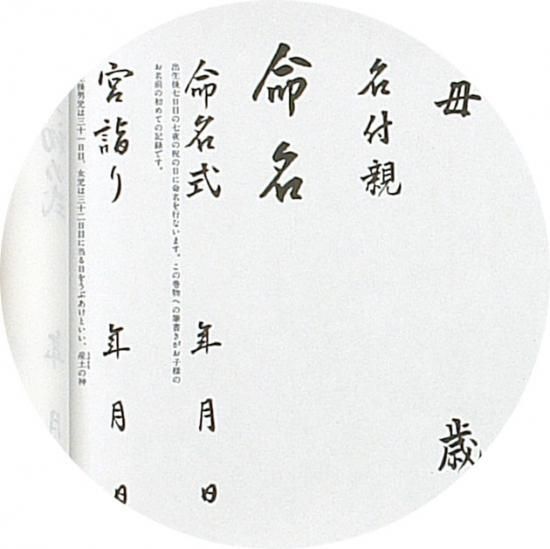 母 歳
名付親
命名
命名式 年 月 日
出生後七日目の七夜の祝の日に命名を行ないます。この巻物への筆書きがお子様の
お名前の初めての記録です。
宮詣り 年 月 日
後男児は三十一日目、女児は三十二日目に当る日をうぶあけといい、産土の神